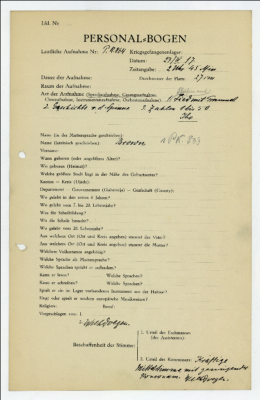 Lfd. Nr.
PERSONAL-BOGEN
Lautliche Aufnahme Nr.: P.K. 864
Kriegsgefangenenlager:
Datum:
Zeitangabe:
Dauer der Aufnahme:
Durchmesser der Platte: 27 cm
Raum der Aufnahme:
Art der Aufnahme (Sprechaufnahme, Gesangsaufnahme,
Choraufnahme, Instrumentenaufnahme, Orchesteraufnahme): 1. Lied mit Trommel
2. Geschichte v. d. Spinne 3. Zahlen
Name (in der Muttersprache geschrieben):
Name (lateinisch geschrieben):
Vorname:
Wann geboren (oder ungefähres Alter)?
Wo geboren (Heimat)?
Welche größere Stadt liegt in der Nähe des Geburtsortes?
Kanton — Kreis (Ujezd):
Department — Gouvernement (Gubernija) — Grafschaft (County):
Wo gelebt in den ersten 6 Jahren?
Wo gelebt vom 7. bis 20. Lebensjahr?
Was für Schulbildung?
Wo die Schule besucht?
Wo gelebt vom 20. Lebensjahr?
Aus welchem Ort (Ort und Kreis angeben) stammt der Vater?
Aus welchem Ort (Ort und Kreis angeben) stammt die Mutter?
Welchem Volksstamm angehörig?
Welche Sprache als Muttersprache?
Welche Sprachen spricht er außerdem?
Kann er lesen?
Welche Sprachen?
Kann er schreiben?
Welche Sprachen?
Spielt er ein im Lager vorhandenes Instrument aus der Heimat?
Singt oder spielt er modern europäische Musikweisen?
Religion:
Beruf:
Vorgeschlagen von: 1.
2.
Beschaffenheit der Stimme:
1. Urteil des Fachmannes
(des Assistenten):
2. Urteil des Kommissars: Kräftige
Mittelstimme mit